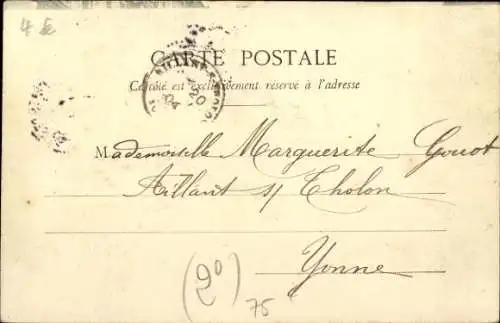 4 £
CARTE POSTALE
Ce côté est exclusivement réservé à l'adresse
Mademoiselle Marguerite Gouot
Aillant s/ Tholon
Yonne
(2⁰)
75